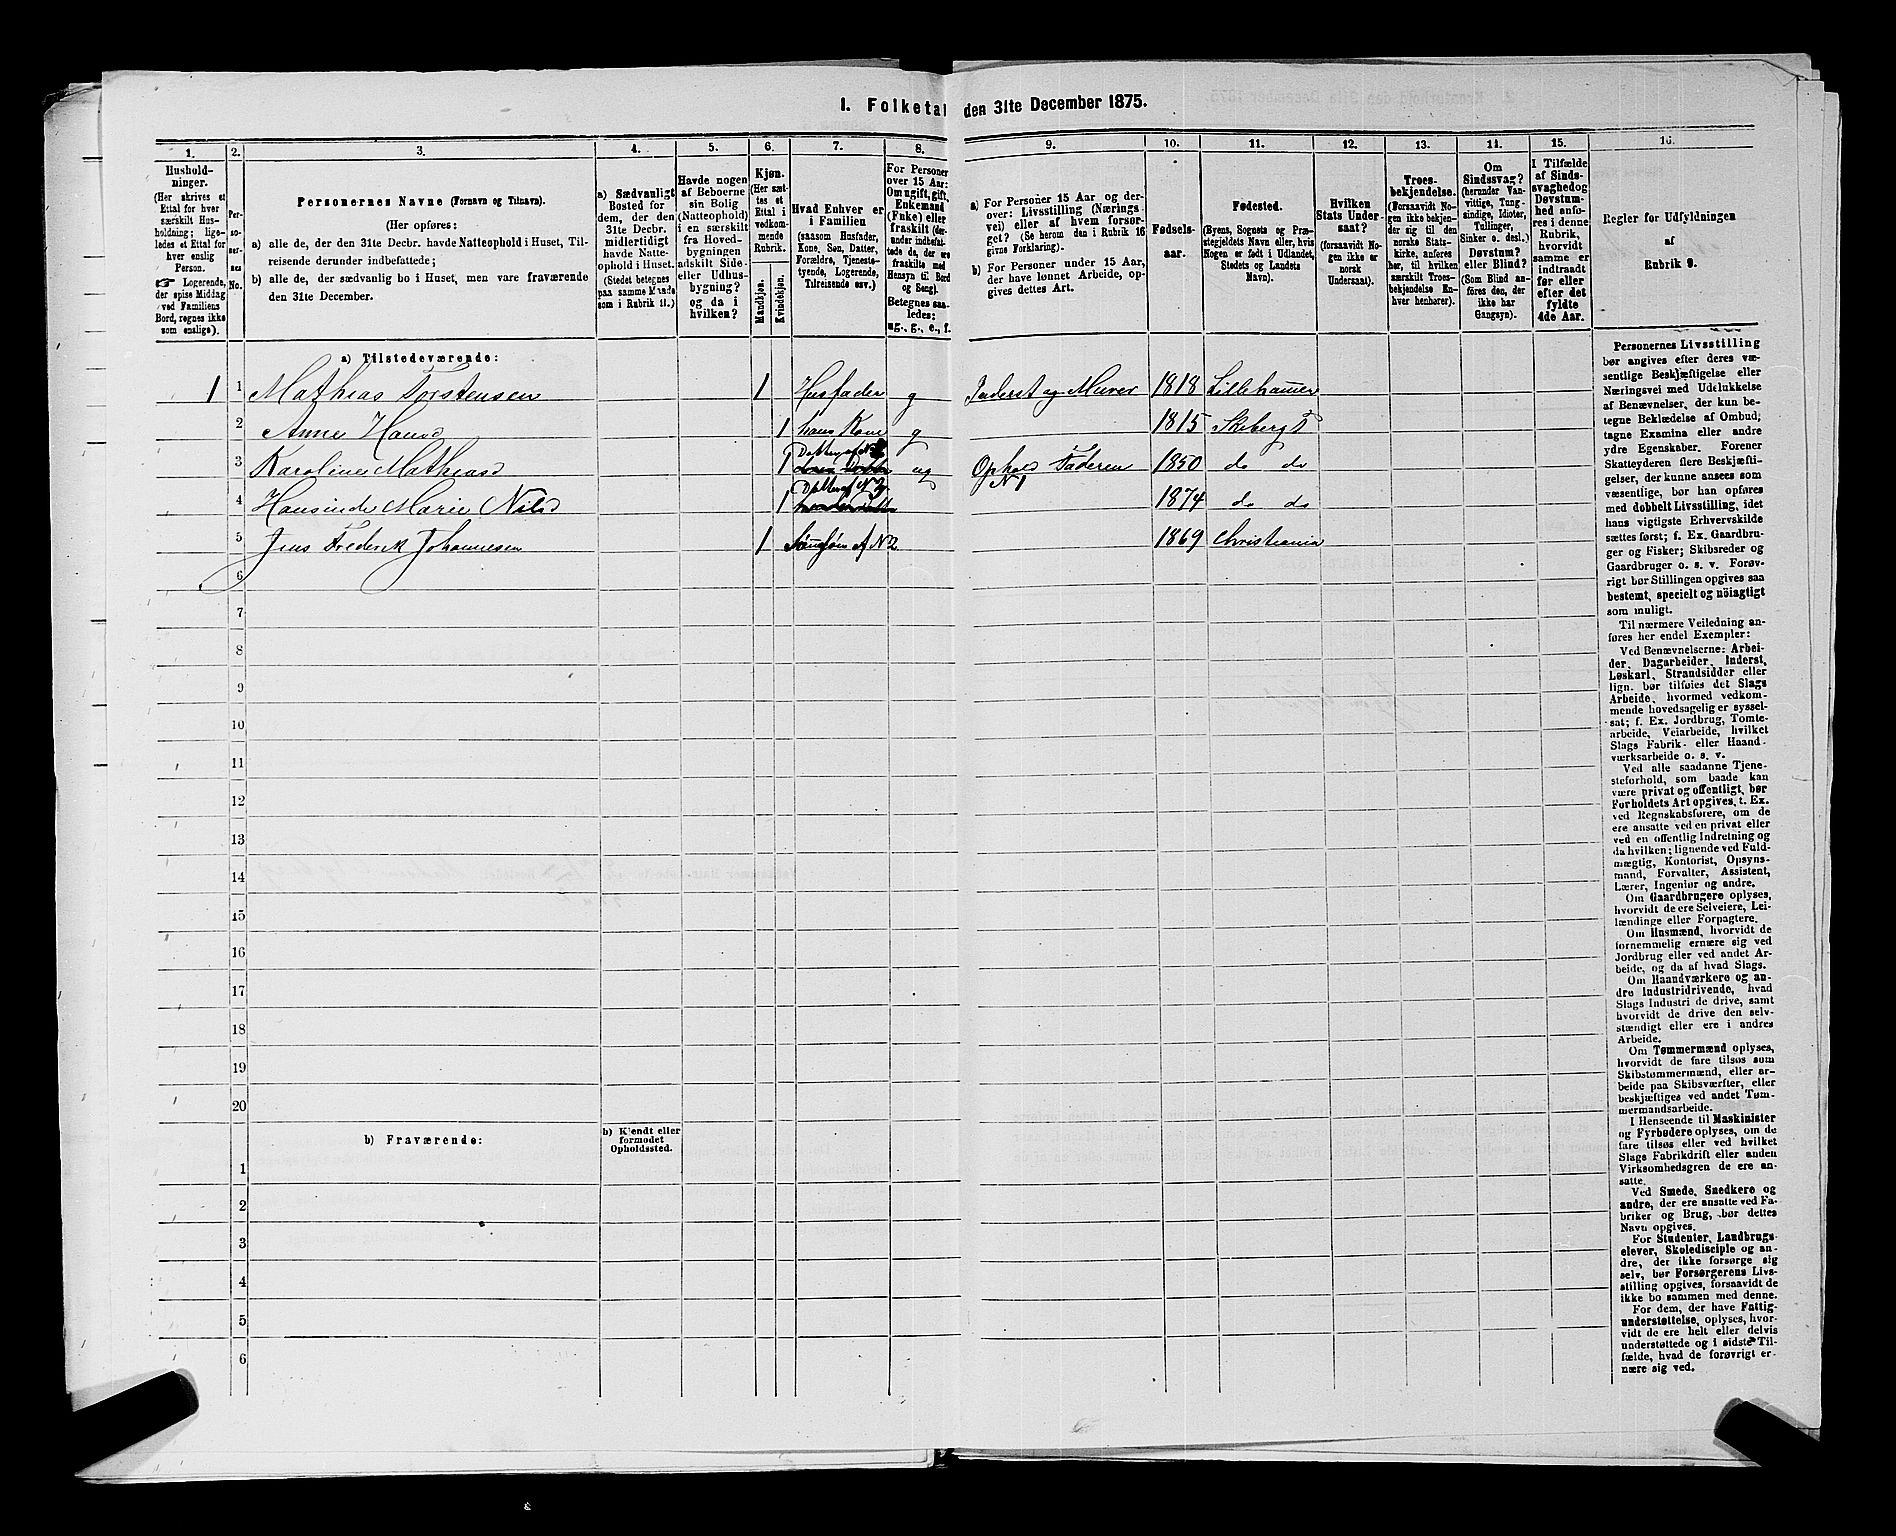 1. Folketal den 31te December 1875.
1.
Hushold-
ninger.
(Her skrives et
Ettal for hver
særskilt Hus-
holdning; lige-
ledes et Ettal for
hver enslig
Person.
☛ Logerende,
der spise Middag
ved Familiens
Bord, regnes ikke
som enslige).
2.
Per-
so-
ner-
nes
No.
3.
Personernes Navne (Fornavn og Tilnavn).
(Her opføres:
a) alle de, der den 31te Decbr. havde Natteophold i Huset, Til-
reisende derunder indbefattede;
b) alle de, der sædvanlig bo i Huset, men vare fraværende
den 31te December.
4.
a) Sædvanligt
Bosted for
dem, der den
31te Decbr.
midlertidigt
havde Natte-
ophold i Huset.
(Stedet betegnes
paa samme Maade
som i Rubrik 11.)
5.
Havde nogen
af Beboerne
sin Bolig
(Natteophold)
i en særskilt
fra Hoved-
bygningen
adskilt Side-
eller Udhus-
bygning?
og da i
hvilken?
6.
Kjøn.
(Her sæt-
tes et
Ettal i
vedkom-
mende
Rubrik.
Mandkjøn.
Kvindekjøn.
7.
Hvad Enhver er
i Familien
(saasom Husfader,
Kone, Søn, Datter,
Forældre, Tjeneste-
tyende, Logerende,
Tilreisende osv.)
8.
For Personer
over 15 Aar:
Om ugift, gift,
Enkemand
(Enke) eller
fraskilt (der-
under indbefat-
tede de, der ere
fraskilte med
Hensyn til Bord
og Seng).
Betegnes saa-
ledes:
ug., g., e., f.
9.
a) For Personer 15 Aar og der-
over: Livsstilling (Nærings-
vei) eller af hvem forsør-
get? (Se herom den i Rubrik 16
givne Forklaring).
b) For Personer under 15 Aar,
der have lønnet Arbeide, op-
gives dettes Art.
10.
Fødsels-
aar.
11.
Fødested.
(Byens, Sognets og Præ-
stegjeldets Navn eller, hvis
Nogen er født i Udlandet,
Stedets og Landets
Navn).
12.
Hvilken
Stats Under-
saat?
(forsaavidt No-
gen ikke er
norsk
Undersaat).
13.
Troes-
bekjendelse.
(Forsaavidt No-
gen ikke bekjen-
der sig til den
norske Stats-
kirke, anføres
her, til hvilken
særskilt Troes-
bekjendelse En-
hver henhører).
14.
Om
Sindssvag?
(herunder Van-
vittige, Tung-
sindige, Idioter,
Tullinger,
Sinker o. desl.)
Døvstum?
eller Blind?
(Som Blind an-
føres den, der
ikke har
Gangsyn).
15.
I Tilfælde
af Sinds-
svaghedog
Døvstum-
hed anfø-
res i denne
Rubrik,
hvorvidt
samme er
indtraadt
før eller
efter det
fyldte
4de Aar.
16.
Regler for Udfyldningen
af
Rubrik 9.
a) Tilstedeværende:
1 1 Mathias Torstensen 1 Husfader g Inderst og Murer 1818 Lillehammer
2 Anne Hansd 1 hans Kone g 1815
3 Karoline Mathiasd 1 ug Ophold Faderen N1 1850 do do
4 Hansine Marie Nilsd 1 1874 do do
5 Jens Frederik Johannesen 1 af N 2 1869 Christiania
6
7
8
9
10
11
12
13
14
15
16
17
18
19
20
b) Fraværende:
b) Kjendt eller
formodet
Opholdssted.
1
2
3
4
5
6
Personernes Livsstilling
bør angives efter deres væ-
sentlige Beskjæftigelse eller
Næringsvei med Udelukkelse
af Benævnelser, der kun be-
tegne Beklædelse af Ombud,
tagne Examina eller andre
ydre Egenskaber. Forener
Skatteyderen flere Beskjæfti-
gelser, der kunne ansees som
væsentlige, bør han opføres
med dobbelt Livsstilling, idet
hans vigtigste Erhvervskilde
sættes først; f. Ex. Gaardbru-
ger og Fisker; Skibsreder og
Gaardbruger o. s. v. Forøv-
rigt bør Stillingen opgives saa
bestemt, specielt og nöiagtigt
som muligt.
Til nærmere Veiledning an-
føres her endel Exempler:
Ved Benævnelserne: Arbei-
der, Dagarbeider, Inderst,
Løskarl, Strandsidder eller
lign. bør tilføies det Slags
Arbeide, hvormed vedkom-
mende hovedsagelig er syssel-
sat; f. Ex. Jordbrug, Tomte-
arbeide, Veiarbeide, hvilket
Slags Fabrik- eller Haand-
værksarbeide o. s. v.
Ved alle saadanne Tjene-
steforhold, som baade kan
være privat og offentligt, bør
Forholdets Art opgives, t. Ex.
ved Regnskabsførere, om de
ere ansatte ved en privat eller
ved en offentlig Indretning og
da hvilken; lignende ved Fuld-
mægtig, Kontorist, Opsyns-
mand, Forvalter, Assistent,
Lærer, Ingeniør og andre.
Om Gaardbrugere oplyses,
hvorvidt de ere Selveiere, Lei-
lændinge eller Forpagtere.
Om Husmænd, hvorvidt de
fornemmelig ernære sig ved
Jordbrug eller ved andet Ar-
beide, og da af hvad Slags.
Om Haandværkere og an-
dre Industridrivende, hvad
Slags Industri de drive, samt
hvorvidt de drive den selv-
stændigt eller ere i andres
Arbeide.
Om Tømmermænd oplyses,
hvorvidt de fare tilsøs som
Skibstømmermænd, eller ar-
beide paa Skibsværfter, eller
beskjæftiges ved andet Tøm-
mermandsarbeide.
I Henseende til Maskinister
og Fyrbødere oplyses, om de
fare tilsøs eller ved hvilket
Slags Fabrikdrift eller anden
Virksomhedsgren de ere an-
satte.
Ved Smede, Snedkere og
andre, der ere ansatte ved Fa-
briker og Brug, bør dettes
Navn opgives.
For Studenter, Landbrugs-
elever, Skoledisciple og an-
dre, der ikke forsørge sig
selv, bør Forsørgerens Livs-
stilling opgives, forsaavidt de
ikke bo sammen med denne.
For dem, der have Fattig-
understøttelse, oplyses, hvor-
vidt de ere helt eller delvis
understøttede og i sidste Til-
fælde, hvad de forøvrigt er-
nære sig ved.